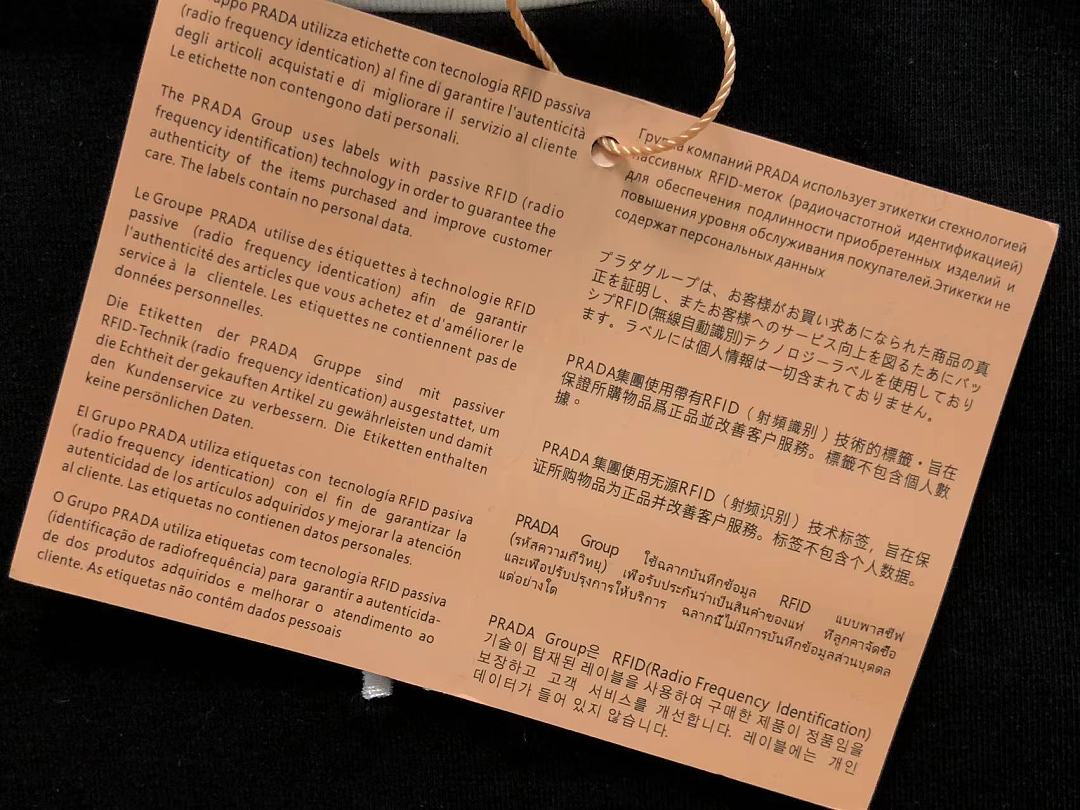 uppo PRADA utilizza etichette con tecnologia RFID passiva
(radio frequency identication) al fine di garantire l'autenticità
degli articoli acquistati e di migliorare il servizio al cliente
Le etichette non contengono dati personali.
The PRADA Group uses labels with passive RFID (radio
frequency identification) technology in order to guarantee the
authenticity of the items purchased and improve customer
care. The labels contain no personal data.
Le Groupe PRADA utilise des étiquettes à technologie RFID
passive (radio frequency identication) afin de garantir
l'authenticité des articles que vous achetez et d'améliorer le
service à la clientele. Les etiquettes ne contiennent pas de
données personnelles.
Die Etiketten der PRADA Gruppe sind mit passiver
RFID-Technik (radio frequency identication) ausgestattet, um
die Echtheit der gekauften Artikel zu gewährleisten und damit
den Kundenservice zu verbessern. Die Etiketten enthalten
keine persönlichen Daten.
El Grupo PRADA utiliza etiquetas con tecnología RFID pasiva
(radio frequency identication) con el fin de garantizar la
autenticidad de los artículos adquiridos y mejorar la atención
al cliente. Las etiquetas no contienen datos personales.
O Grupo PRADA utiliza etiquetas com tecnologia RFID passiva
(identificação de radiofrequência) para garantir a autenticida-
de dos produtos adquiridos e melhorar o atendimento ao
cliente. As etiquetas não contêm dados pessoais
Группа компаний PRADA использует этикетки стехнологией
пассивных RFID-меток (радиочастотной идентификацией)
для обеспечения подлинности приобретенных изделий и
повышения уровня обслуживания покупателей.Этикетки не
содержат персональных данных
プラダグループは、お客様がお買い求あになられた商品の真
正を証明し、またお客様へのサービス向上を図るたあにパッ
シブRFID(無線自動識別)テクノロジーラベルを使用しており
ます。ラベルには個人情報は一切含まれておりません。
PRADA集團使用帶有RFID（射頻識别）技術的標籤・旨在
保證所購物品爲正品並改善客户服務。標籤不包含個人數
據。
PRADA 集團使用无源RFID（射频识别）技术标签，旨在保
证所购物品为正品并改善客户服務。标签不包含个人数据。
PRADA Group ใช้ฉลากบันทึกข้อมูล RFID แบบพาสซีฟ
(รหัสความถี่วิทยุ) เพื่อรับประกันว่าเป็นสินค้าของแท้ ที่ลูกค้าจัดซื้อ
และเพื่อปรับปรุงการให้บริการ ฉลากนี้ไม่มีการบันทึกข้อมูลส่วนบุคคล
แต่อย่างใด
PRADA Group은 RFID(Radio Frequency Identification)
기술이 탑재된 레이블을 사용하여 구매한 제품이 정품임을
보장하고 고객 서비스를 개선합니다. 레이블에는 개인
데이터가 들어 있지 않습니다.